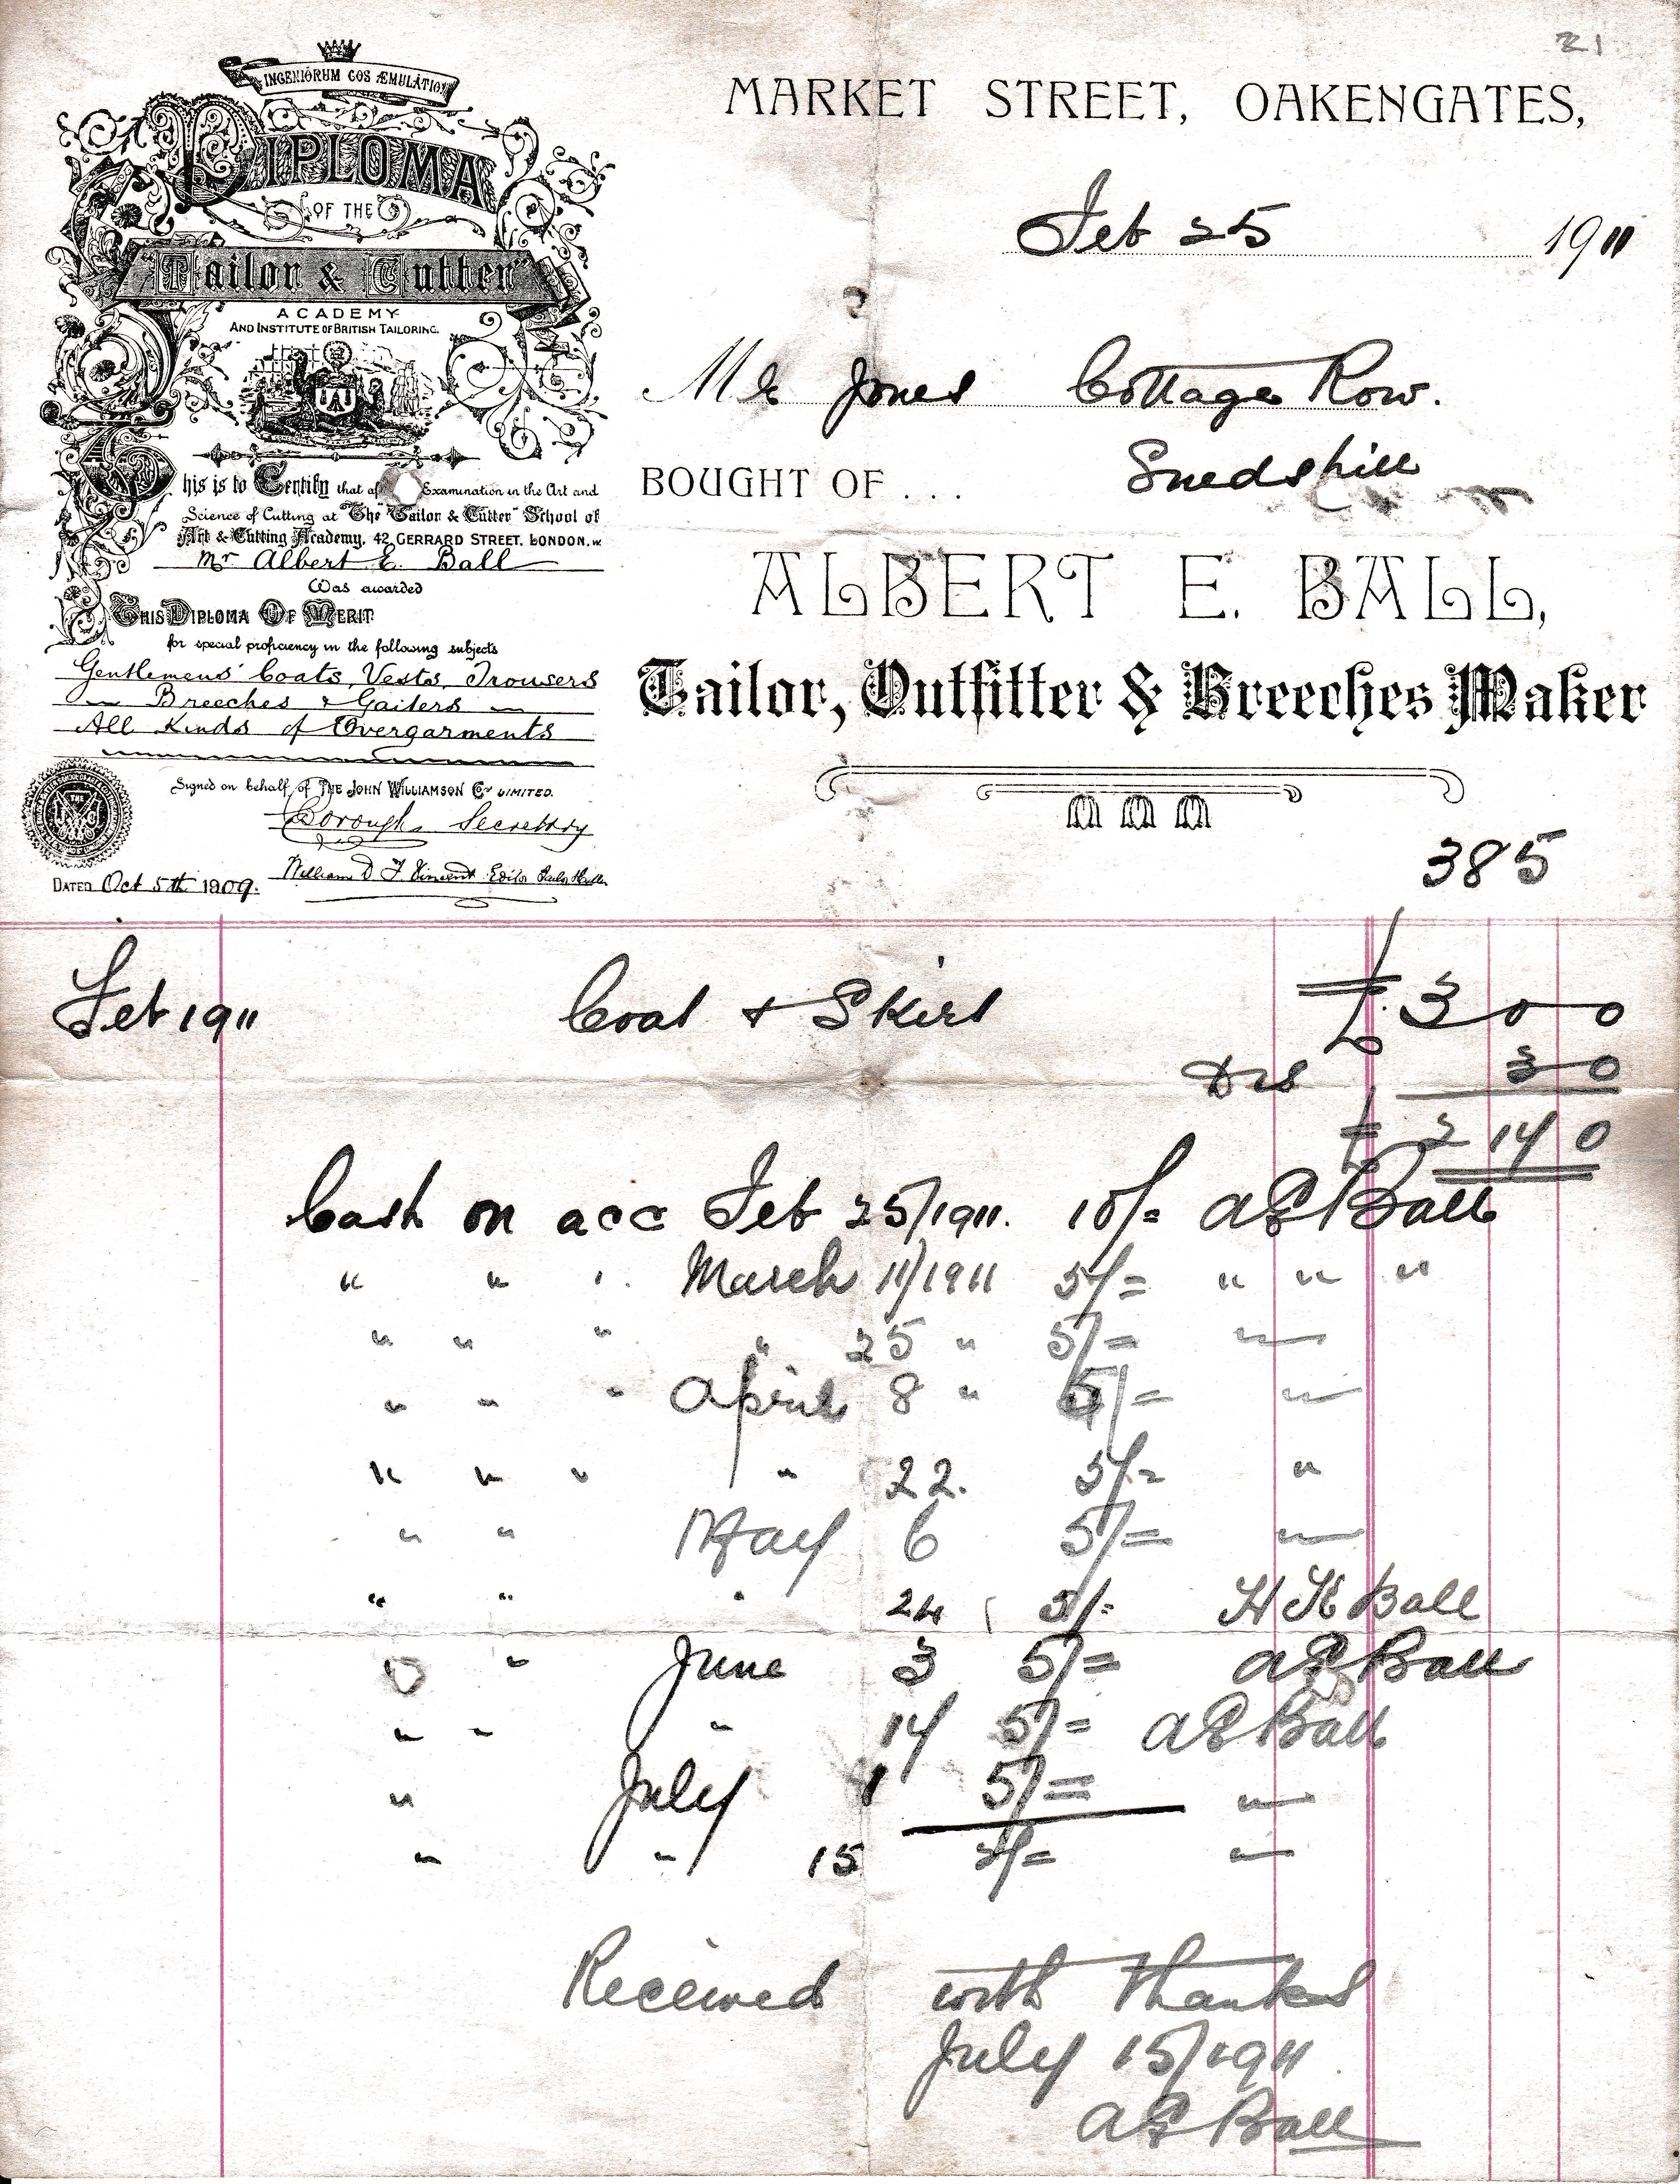 21
INGENIORUM COS ÆMULATIO
DIPLOMA
OF THE
"Tailor & Cutter"
ACADEMY
AND INSTITUTE OF BRITISH TAILORING.
This is to Certify that af Examination in the Art and
Science of Cutting at "The Tailor & Cutter" School of
Art & Cutting Academy, 42, GERRARD STREET, LONDON, W.
Mr Albert E. Ball
Was awarded
THIS DIPLOMA OF MERIT
for special proficiency in the following subjects
Gentlemens' Coats, Vests, Trousers
Breeches & Gaiters
All Kinds of Overgarments
Signed on behalf of THE JOHN WILLIAMSON Coy LIMITED.
Secretary
William D. F. Vincent Editor
DATED Oct 5th 1909.
MARKET STREET, OAKENGATES,
Feb 25 1911
Mr Jones Cottage Row.
Snedshill
BOUGHT OF ...
ALBERT E. BALL,
Tailor, Outfitter & Breeches Maker
385
Feb 1911 Coat & Skirt £ 3 0 0
Dis 3 0
£ 2 14 0
Cash on acc Feb 25/1911. 10/= A E Ball
" " " March 11/1911 5/= " " "
" " " " 25 " 5/= "
" " " April 8 " 5/= "
" " " " 22. 5/= "
" " May 6 5/= "
" " " 24 5/- H K Ball
" June 3 5/= A E Ball
" " " 14 5/= A E Ball
" July 1 5/= "
" " 15 /= "
Received with thanks
July 15/1911
A E Ball